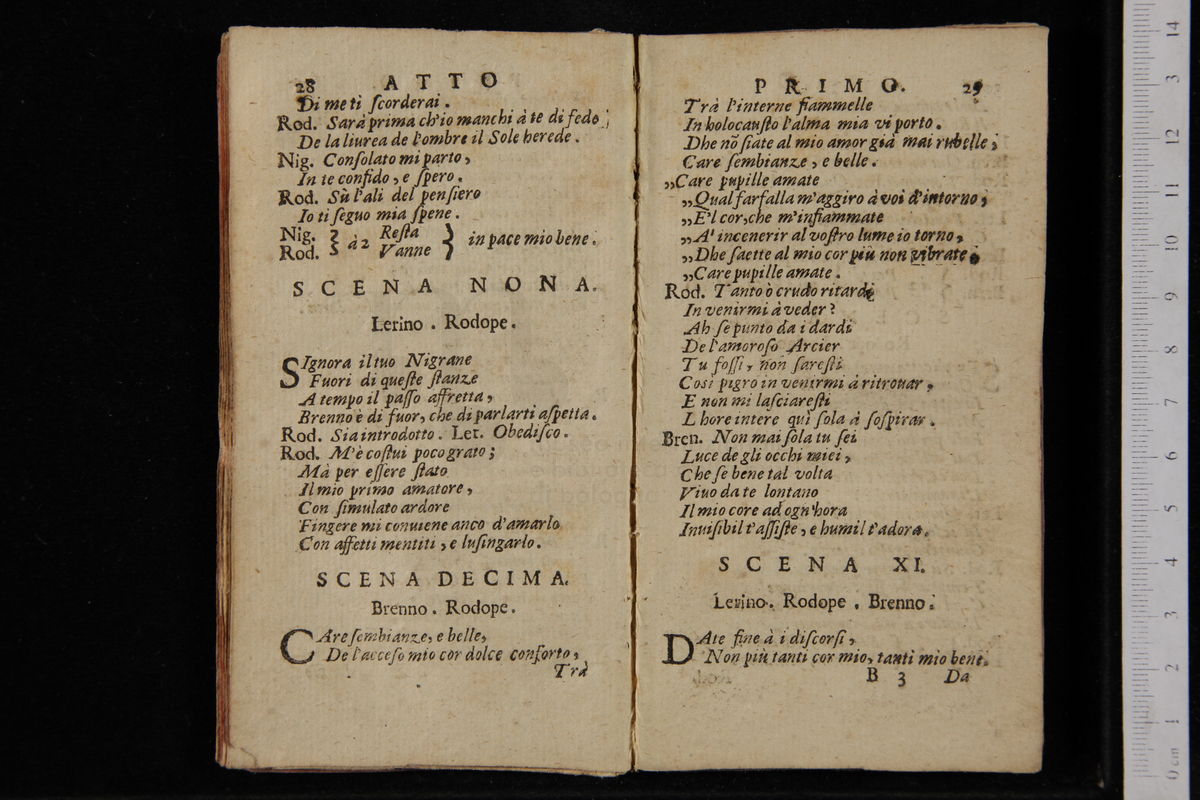 28 ATTO
Di me ti ſcorderai.
Rod. Sarà prima ch'io manchi à te di fede;
De la liurea de l'ombre il Sole herede.
Nig. Conſolato mi parto,
In te confido, e ſpero.
Rod. Sù l'ali del penſiero
Io ti ſeguo mia ſpene.
Nig. } à 2 Reſta } in pace mio bene.
Rod. } Vanne }
SCENA NONA.
Lerino. Rodope.
SIgnora il tuo Nigrane
Fuori di queſte ſtanze
A tempo il paſſo affretta,
Brenno è di fuor, che di parlarti aſpetta.
Rod. Sia introdotto. Let. Obediſco.
Rod. M'è coſtui poco grato;
Mà per eſſere ſtato
Il mio primo amatore,
Con ſimulato ardore
Fingere mi conuiene anco d'amarlo
Con affetti mentiti, e luſingarlo.
SCENA DECIMA.
Brenno. Rodope.
CAre ſembianze, e belle,
De l'acceſo mio cor dolce conforto,
Trà
PRIMO. 29
Trà l'interne fiammelle
In holocauſto l'alma mia vi porto.
Dhe nõ ſiate al mio amor già mai rubelle;
Care ſembianze, e belle.
„Care pupille amate
„Qual farfalla m'aggiro à voi d'intorno;
„E'l cor, che m'infiammate
„A' incenerir al voſtro lume io torno,
„Dhe ſaette al mio cor più non vibrate;
„Care pupille amate.
Rod. Tanto ò crudo ritardi
In venirmi à veder?
Ah ſe punto da i dardi
De l'amoroſo Arcier
Tu foſſi, non ſareſti
Così pigro in venirmi à ritrouar,
E non mi laſciareſti
L hore intere quì ſola à ſoſpirar.
Bren. Non mai ſola tu ſei
Luce de gli occhi miei,
Che ſe bene tal volta
Viuo da te lontano
Il mio core ad ogn'hora
Inuiſibil t'aſſiſte, e humil t'adora.
SCENA XI.
Lerino. Rodope. Brenno.
DAte fine à i diſcorſi,
Non più tanti cor mio, tanti mio bene.
B 3 Da
0 cm 1 2 3 4 5 6 7 8 9 10 11 12 13 14